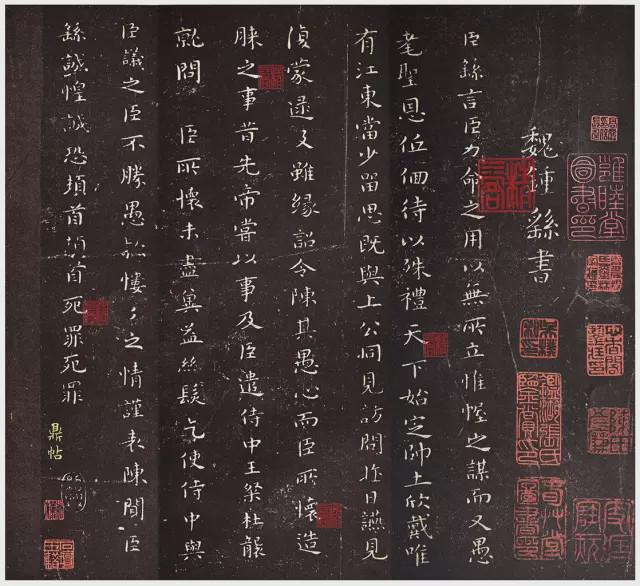 魏鍾繇書
臣繇言臣力命之用以無所立惟幄之謀而又愚
耄聖恩低佪待以殊禮天下始定師土欣戴唯
有江東當少留思既與上公同見訪問昨日讌見
復蒙逮及雖緣詔令陳其愚心而臣所懷造
膝之事昔先帝嘗以事及臣遣侍中王粲杜襲
就問臣所懷未盡冀益絲髮乞使侍中與
臣議之臣不勝愚款慺慺之情謹表陳聞臣
繇誠惶誠恐頓首頓首死罪死罪
鼎帖